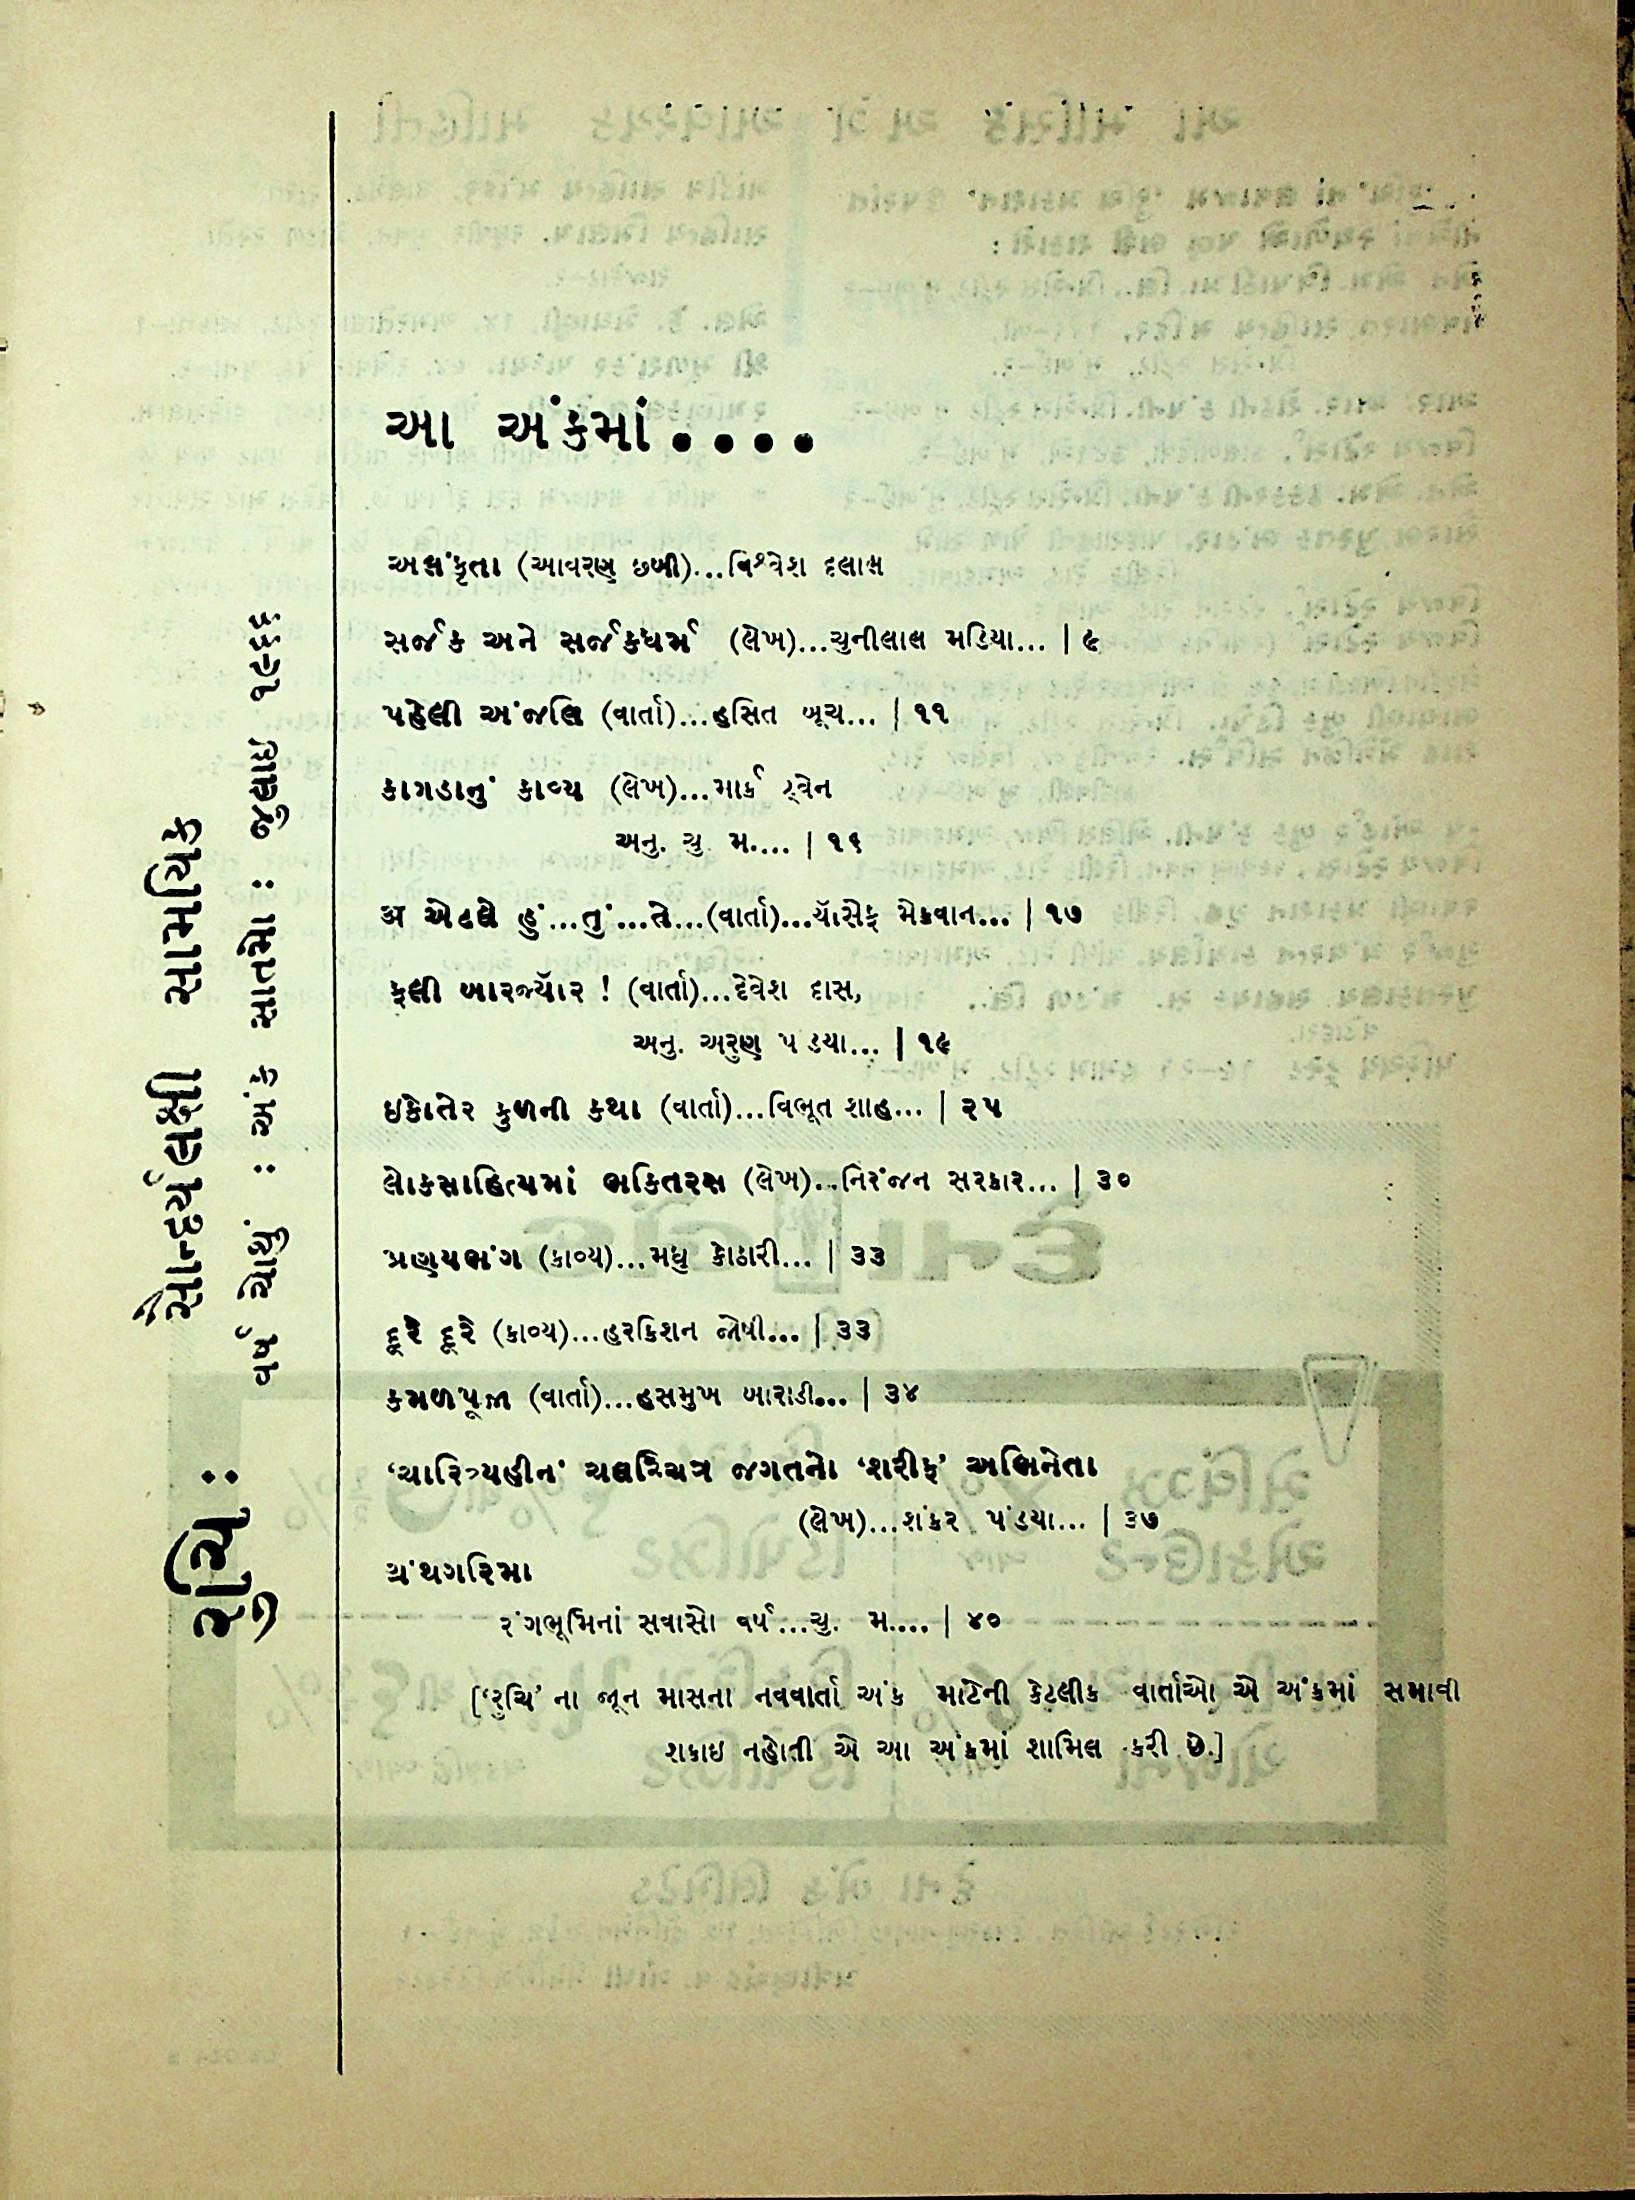 રુચિ :
સૌન્દર્યલક્ષી સામયિક
વર્ષ ચોથું : અંક સાતમો : જુલાઇ ૧૯૬૬
આ અંકમાં....
અલંકૃતા (આવરણ છબી)...વિશ્વેશ દલાલ
સર્જક અને સર્જકધર્મ (લેખ)...ચુનીલાલ મડિયા... | ૯
પહેલી અંજલિ (વાર્તા)...હસિત બૂચ... | ૧૧
કાગડાનું કાવ્ય (લેખ)...માર્ક ટ્વેન
અનુ. ચુ. મ.... | ૧૬
अ એટલે હું...તું...તે...(વાર્તા)...યૉસેફ મેકવાન... | ૧૭
ફૂલી ખારજ્યૉર ! (વાર્તા)...દેવેશ દાસ,
અનુ. અરુણ પંડયા... | ૧૯
ઇકોતેર કુળની કથા (વાર્તા)...વિભૂત શાહ... | ૨૫
લોકસાહિત્યમાં ભકિતરસ (લેખ)...નિરંજન સરકાર... | ૩૦
પ્રણયભંગ (કાવ્ય)...મધુ કોઠારી... | ૩૩
દૂરે દૂરે (કાવ્ય)...હરકિશન જોષી... | ૩૩
કમળપૂજા (વાર્તા)...હસમુખ બારાડી... | ૩૪
‘ચારિત્ર્યહીન’ ચલચ્ચિત્ર જગતનો ‘શરીફ’ અભિનેતા
(લેખ)...શંકર પંડયા... | ૩૭
ગ્રંથગરિમા
રંગભૂમિનાં સવાસો વર્ષ...ચુ. મ.... | ૪૦
[‘રુચિ’ ના જૂન માસના નવવાર્તા અંક માટેની કેટલીક વાર્તાઓ એ અંકમાં સમાવી
શકાઇ નહોતી એ આ અંકમાં શામિલ કરી છે.]